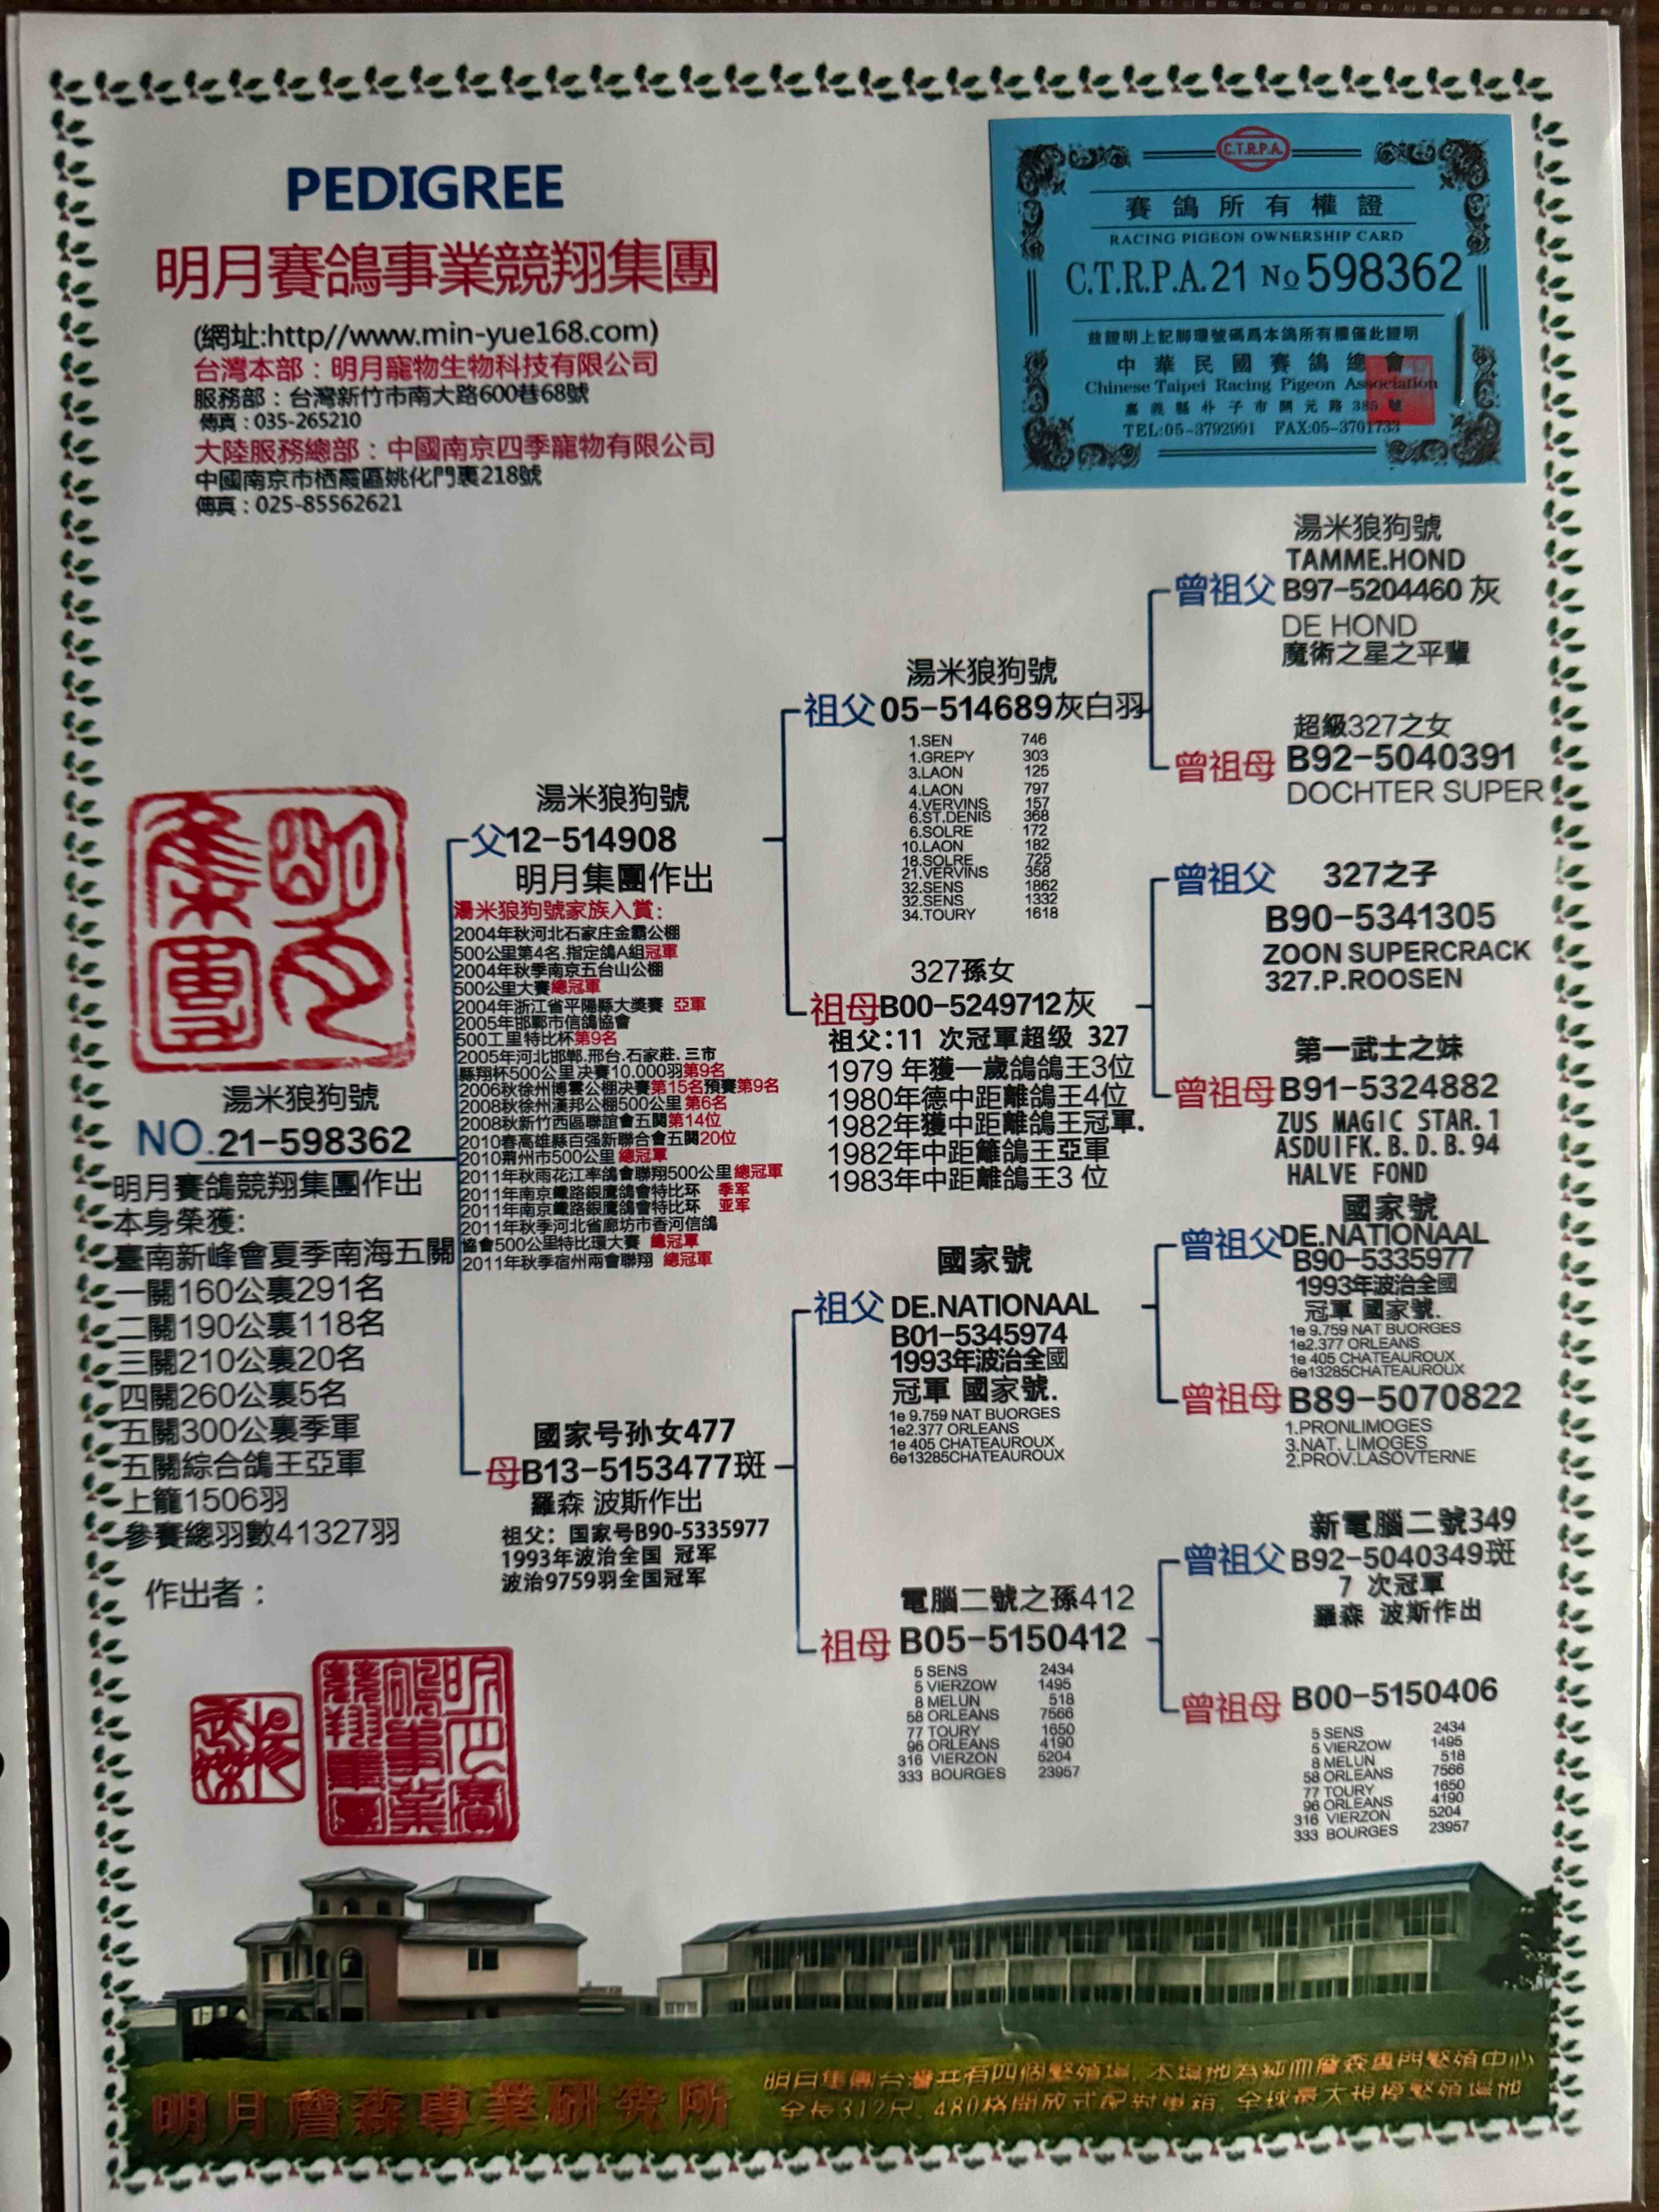 PEDIGREE
明月賽鴿事業競翔集團
(網址:http//www.min-yue168.com)
台灣本部：明月寵物生物科技有限公司
服務部：台灣新竹市南大路600巷68號
傳真：035-265210
大陸服務總部：中國南京四季寵物有限公司
中國南京市栖霞區姚化門裏218號
傳真：025-85562621
C.T.R.P.A.
賽鴿所有權證
RACING PIGEON OWNERSHIP CARD
C.T.R.P.A. 21 No 598362
茲證明上記脚環號碼爲本鴿所有權僅此證明
中華民國賽鴿總會
Chinese Taipei Racing Pigeon Association
嘉義縣朴子市開元路385號
TEL:05-3792991 FAX:05-3701733
湯米狼狗號
NO.21-598362
明月賽鴿競翔集團作出
本身榮獲:
臺南新峰會夏季南海五關
一關160公裏291名
二關190公裏118名
三關210公裏20名
四關260公裏5名
五關300公裏季軍
五關綜合鴿王亞軍
上籠1506羽
參賽總羽數41327羽
作出者：
湯米狼狗號
父12-514908
明月集團作出
湯米狼狗號家族入賞:
2004年秋河北石家庄金霸公棚
500公里第4名.指定鴿A組冠軍
2004年秋季南京五台山公棚
500公里大賽總冠軍
2004年浙江省平陽縣大獎賽 亞軍
2005年邯鄲市信鴿協會
500工里特比杯第9名
2005年河北邯郸.邢台.石家莊.三市
縣翔杯500公里决賽10.000羽第9名
2006秋徐州博雲公棚决賽第15名預賽第9名
2008秋徐州漢邦公棚500公里第6名
2008秋新竹西區聯誼會五関第14位
2010春高雄縣百强新聯合會五関20位
2010荆州市500公里 總冠軍
2011年秋雨花江率鴿會聯翔500公里總冠軍
2011年南京鐵路銀鷹鴿會特比环 季军
2011年南京鐵路銀鷹鴿會特比环 亚军
2011年秋季河北省廊坊市香河信鴿
協會500公里特比環大賽 總冠軍
2011年秋季宿州兩會聯翔 總冠軍
國家号孙女477
母B13-5153477斑
羅森 波斯作出
祖父：国家号B90-5335977
1993年波治全国 冠军
波治9759羽全国冠军
湯米狼狗號
祖父05-514689灰白羽
1.SEN 746
1.GREPY 303
3.LAON 125
4.LAON 797
4.VERVINS 157
6.ST.DENIS 368
6.SOLRE 172
10.LAON 182
18.SOLRE 725
21.VERVINS 358
32.SENS 1862
32.SENS 1332
34.TOURY 1618
327孫女
祖母B00-5249712灰
祖父:11 次冠軍超级 327
1979 年獲一歲鴿鴿王3位
1980年德中距離鴿王4位
1982年獲中距離鴿王冠軍.
1982年中距籬鴿王亞軍
1983年中距離鴿王3 位
國家號
祖父 DE.NATIONAAL
B01-5345974
1993年波治全國
冠軍 國家號.
1e 9.759 NAT BUORGES
1e2.377 ORLEANS
1e 405 CHATEAUROUX
6e13285CHATEAUROUX
電腦二號之孫412
祖母 B05-5150412
5 SENS 2434
5 VIERZOW 1495
8 MELUN 518
58 ORLEANS 7566
77 TOURY 1650
96 ORLEANS 4190
316 VIERZON 5204
333 BOURGES 23957
湯米狼狗號
TAMME.HOND
曾祖父 B97-5204460 灰
DE HOND
魔術之星之平輩
超級327之女
曾祖母 B92-5040391
DOCHTER SUPER
曾祖父 327之子
B90-5341305
ZOON SUPERCRACK
327.P.ROOSEN
第一武士之妹
曾祖母B91-5324882
ZUS MAGIC STAR.1
ASDUIFK.B.D.B.94
HALVE FOND
國家號
曾祖父DE.NATIONAAL
B90-5335977
1993年波治全國
冠軍 國家號.
1e 9.759 NAT BUORGES
1e2.377 ORLEANS
1e 405 CHATEAUROUX
6e13285CHATEAUROUX
曾祖母 B89-5070822
1.PRONLIMOGES
3.NAT. LIMOGES
2.PROV.LASOVTERNE
新電腦二號349
曾祖父 B92-5040349斑
7 次冠軍
羅森 波斯作出
曾祖母 B00-5150406
5 SENS 2434
5 VIERZOW 1495
8 MELUN 518
58 ORLEANS 7566
77 TOURY 1650
96 ORLEANS 4190
316 VIERZON 5204
333 BOURGES 23957
明月詹森專業研究所
明月集團台灣共有四個繁殖場,本場地為純血詹森專門繁殖中心
全長312尺,480格開放式配對巢箱,全球最大種鴿繁殖場地